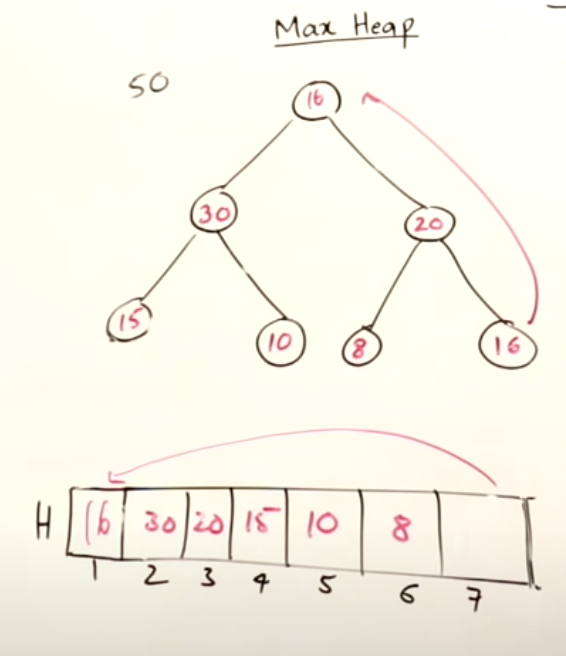 Max Heap
50
16
30 20
15 10 8 16
H 16 30 20 15 10 8
1 2 3 4 5 6 7